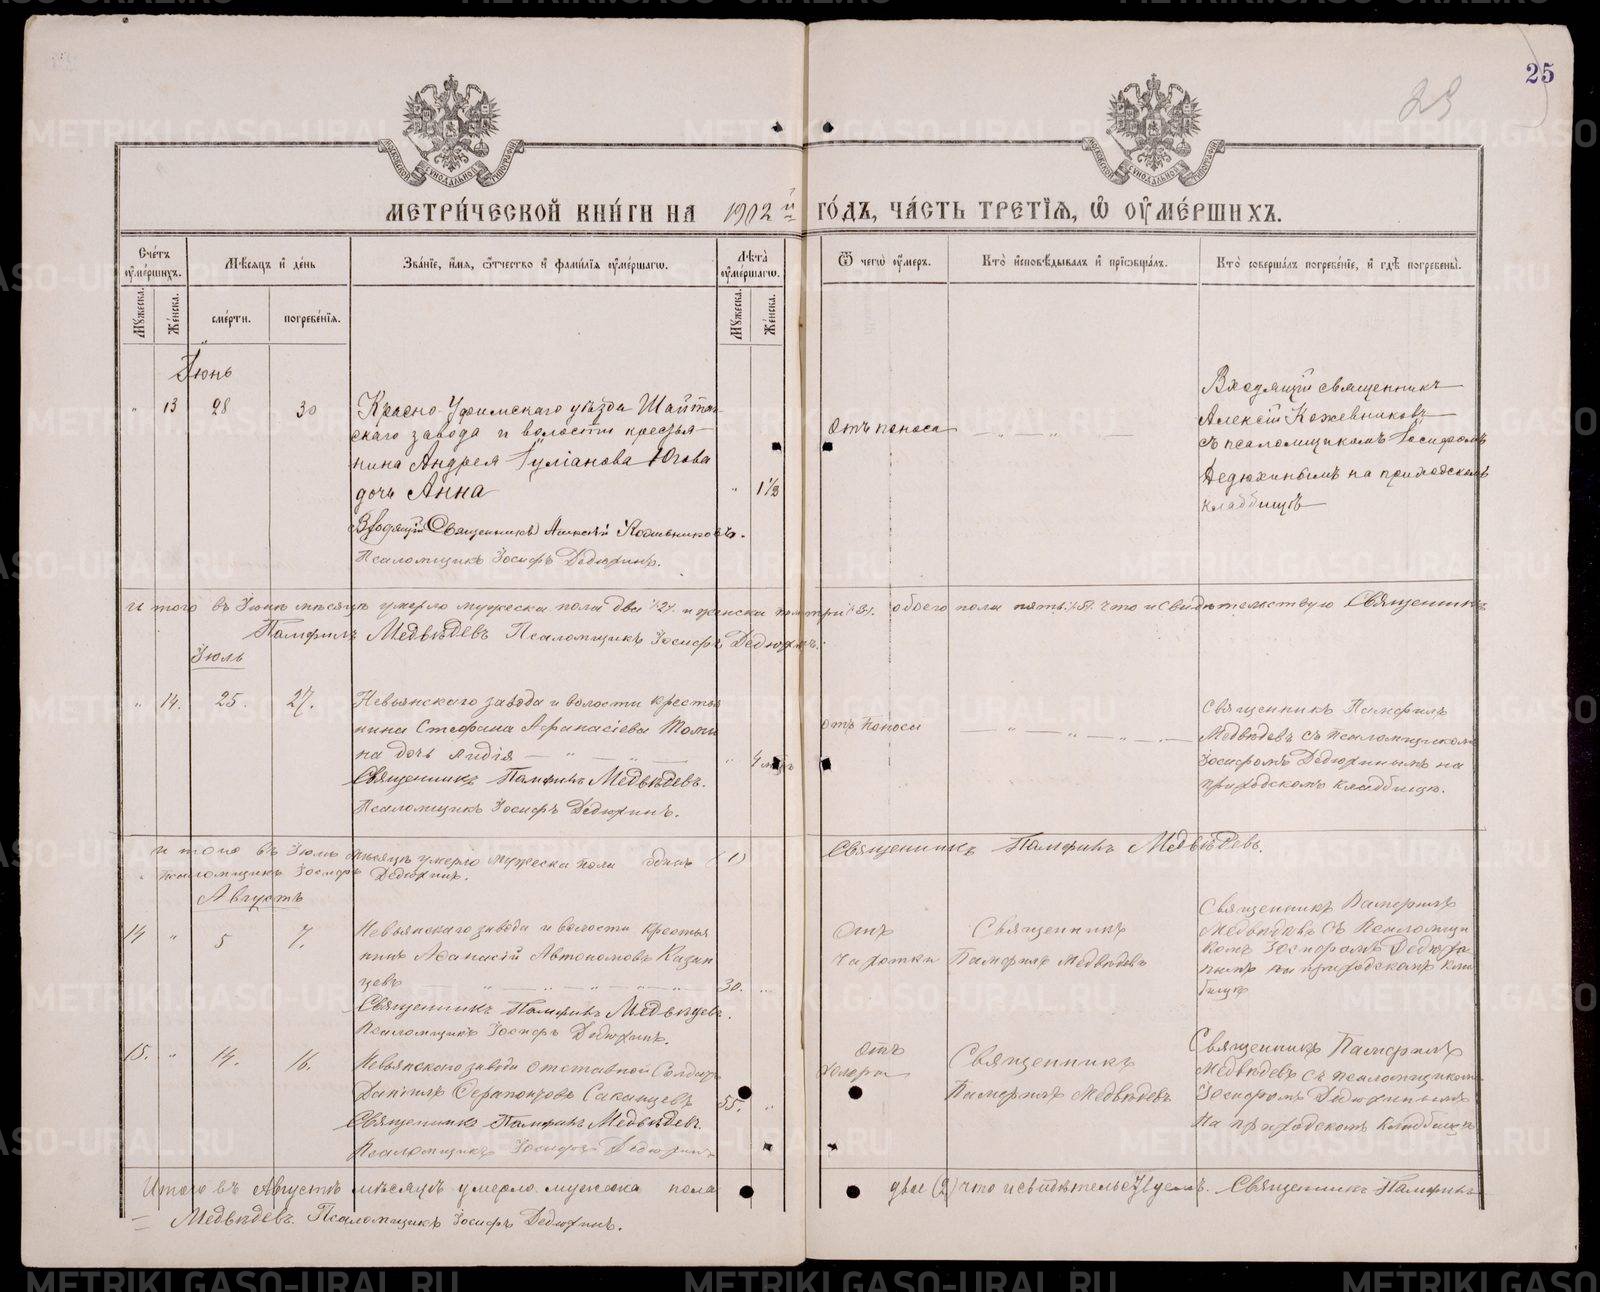 25
МЕТРИ́ЧЕСКОЙ КНИ́ГИ НА 1902 й ГО́ДЪ, ЧА́СТЬ ТРЕ́ТІЯ, Ѿ ОУ҆МЕ́РШИХЪ.
Сче́тъ оу҆ме́ршихъ.
Мѣсяцъ и҆ де́нь
Зва́ніе, и҆мя, ѻ҆тчество и҆ фами́лія оу҆ме́ршагѡ.
Лѣта̀ оу҆ме́ршагѡ.
Ѿ чегѡ̀ оу҆́меръ.
Кто̀ и҆сповѣ́дывалъ и҆ приѡбща́лъ.
Кто̀ соверша́лъ погребе́ніе, и҆ гдѣ̀ погребены̀.
Мꙋ́жеска.
Же́нска.
сме́рти.
погребе́нія.
Мꙋ́жеска.
Же́нска.
Іюнь
" 13 28 30
Красно-Уфимскаго уѣзда Шайтан-
скаго завода и волости крестья-
нина Андрея Іуліанова Югова
дочь Анна
" 1½
Входящій Священникъ Алексѣй Кожевниковъ.
Псаломщикъ Іосифъ Дедюхинъ.
Отъ поноса
Входящій священникъ
Алексій Кожевниковъ
съ псаломщикомъ Іосифомъ
Дедюхинымъ на приходскомъ
кладбищѣ
Итого въ Іюнѣ мѣсяцѣ умерло мужеска пола два /2/. и женска пола три /3/. обоего пола пять /5/. что и свидѣтельствую Священникъ
Памфилъ Медвѣдевъ Псаломщикъ Іосифъ Дедюхинъ.
Іюль
" 14. 25. 27.
Невьянскаго завода и волости крестья
нина Стефана Афанасіева Томи
на дочь Лидія
" 4 мѣс
Священникъ Памфилъ Медвѣдевъ.
Псаломщикъ Іосифъ Дедюхинъ.
отъ поноса
Священникъ Памфилъ
Медвѣдевъ съ псаломщикомъ
Іосифомъ Дедюхинымъ на
приходскомъ кладбищѣ.
Итого въ Іюлѣ мѣсяцѣ умерло мужеска пола одинъ (1) Священникъ Памфилъ Медвѣдевъ.
Псаломщикъ Іосифъ Дедюхинъ.
Августъ
14 " 5 7.
Невьянскаго завода и волости крестья
нинъ Афанасій Автономовъ Казан
цевъ
30. "
Священникъ Памфилъ Медвѣдевъ.
Псаломщикъ Іосифъ Дедюхинъ.
Отъ
чахотки
Священникъ
Памфилъ Медвѣдевъ
Священникъ Памфилъ
Медвѣдевъ съ Псаломщи
комъ Іосифомъ Дедюхи
нымъ на приходскомъ клад
бищѣ
15. " 14. 16.
Невьянскаго завода отставной Солдатъ
Даніилъ Серапіоновъ Саканцевъ
55. "
Священникъ Памфилъ Медвѣдевъ.
Псаломщикъ Іосифъ Дедюхинъ
Отъ
Священникъ
Памфилъ Медвѣдевъ
Священникъ Памфилъ
Медвѣдевъ съ псаломщикомъ
Іосифомъ Дедюхинымъ
на приходскомъ кладбищѣ
Итого въ Августѣ мѣсяцѣ умерло мужеска пола двое (2) что и свидѣтельствуемъ. Священникъ Памфилъ
Медвѣдевъ. Псаломщикъ Іосифъ Дедюхинъ.
METRIKI.GASO-URAL.RU